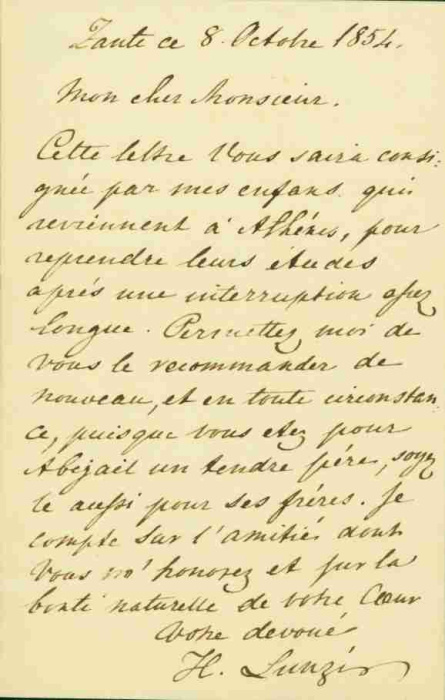 Zante ce 8. Octobre 1854.
Mon cher Monsieur.
Cette lettre Vous saira consi-
gnée par mes enfans qui
reviennent à Athénes, pour
reprendre leurs études
aprés une interruption assez
longue. Permettez moi de
vous le recommander de
nouveau, et en toute circonstan-
ce, puisque vous etez pour
Abigail un tendre pére, soyez
le aussi pour ses fréres. Je
compte sur l'amitié dont
Vous m'honorez et sur la
bonté naturelle de votre Cœur
Votre devoué
H. Lunzi